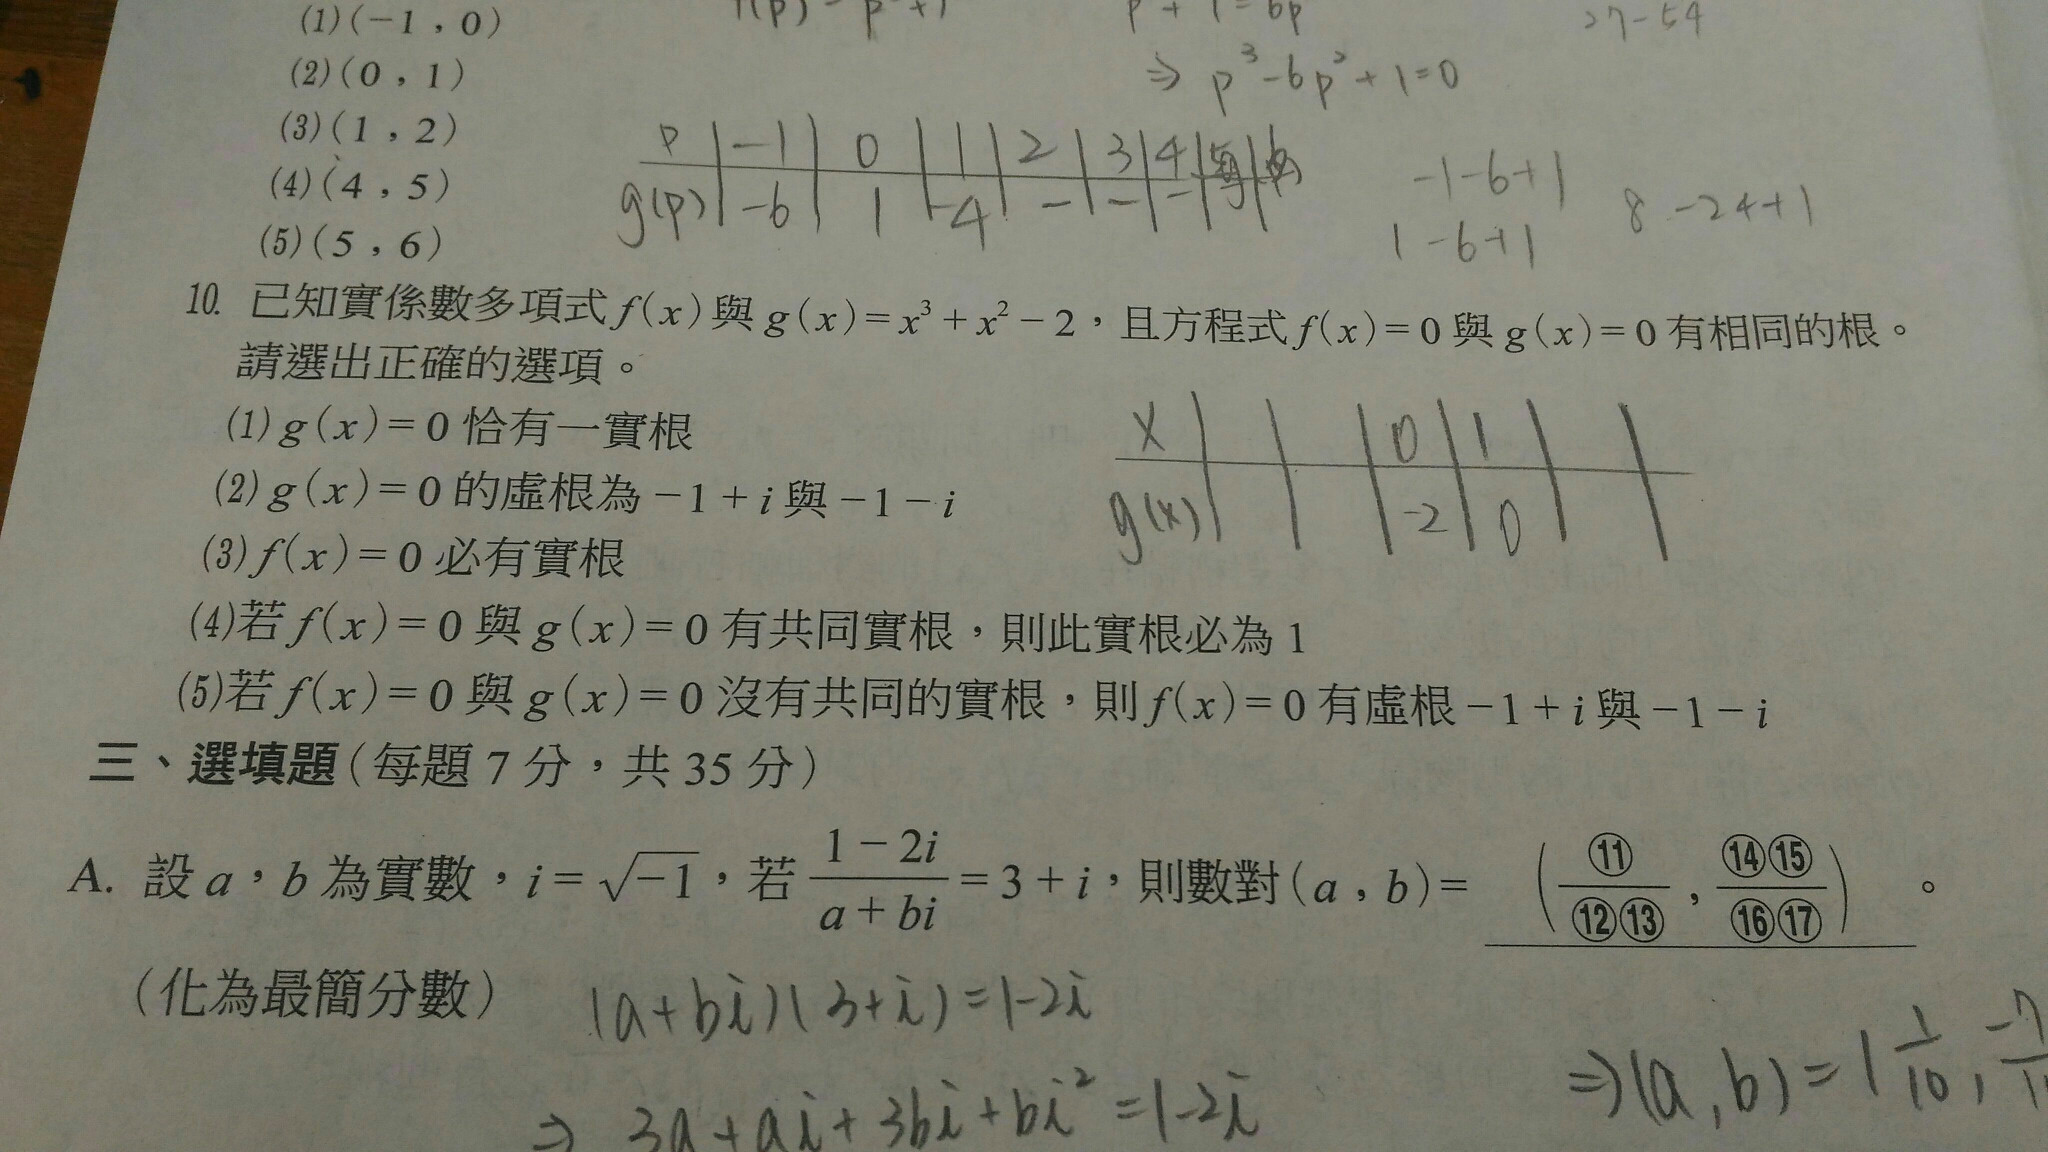 (1)(-1，0)
p³-6p²+1=0
27-54
(2)(0，1)
⇒ p³-6p²+1=0
(3)(1，2)
p | -1 | 0 | 1 | 2 | 3 | 4
(4)(4，5)
g(p) | -6 | 1 | -4 | - | - | -
-1-6+1
8-24+1
(5)(5，6)
1-6+1
10. 已知實係數多項式 f(x) 與 g(x)=x³+x²-2，且方程式 f(x)=0 與 g(x)=0 有相同的根。
請選出正確的選項。
(1) g(x)=0 恰有一實根
x | 0 | 1
(2) g(x)=0 的虛根為 -1+i 與 -1-i
g(x) | -2 | 0
(3) f(x)=0 必有實根
(4)若 f(x)=0 與 g(x)=0 有共同實根，則此實根必為 1
(5)若 f(x)=0 與 g(x)=0 沒有共同的實根，則 f(x)=0 有虛根 -1+i 與 -1-i
三、選填題(每題 7 分，共 35 分)
A. 設 a，b 為實數，i=√-1，若 (1-2i)/(a+bi)=3+i，則數對(a，b)= (⑪/⑫⑬，⑭⑮/⑯⑰)。
(化為最簡分數)
(a+bi)(3+i)=1-2i
⇒(a,b)=(1/10, -7/1
⇒ 3a+ai+3bi+bi²=1-2i